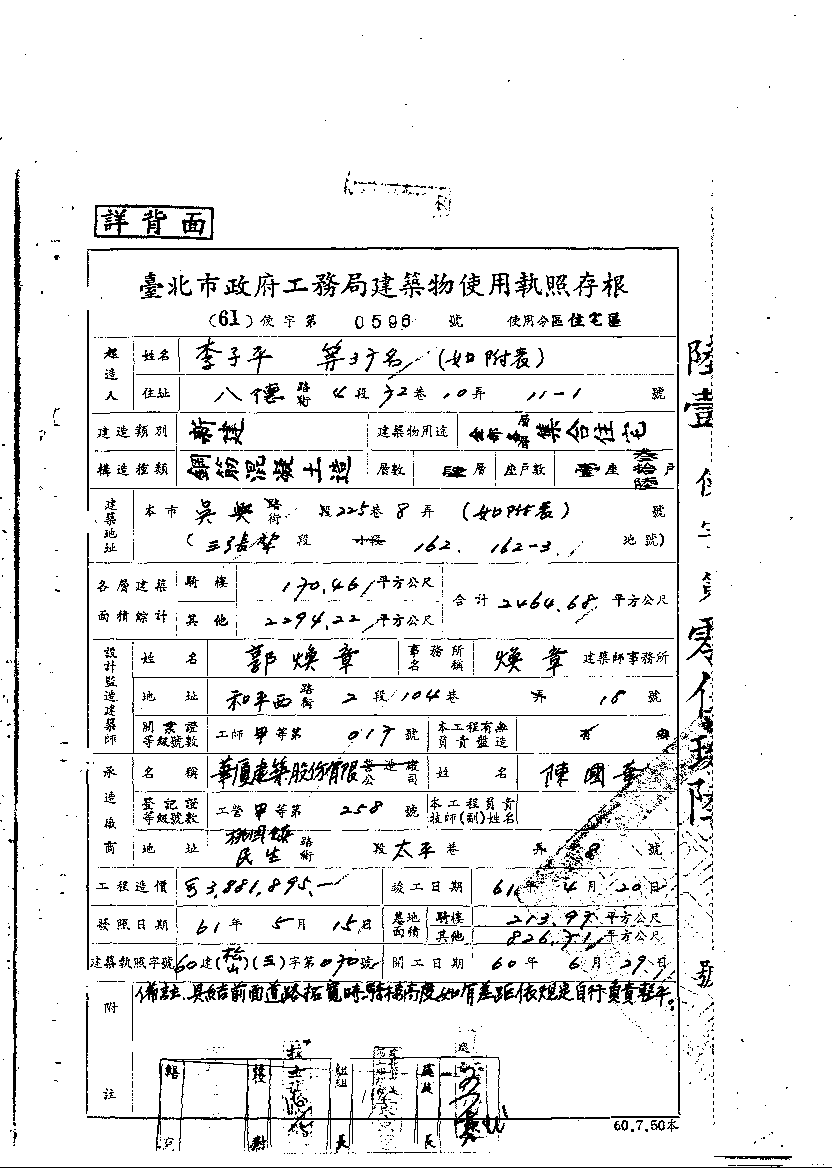 詳背面
臺北市政府工務局建築物使用執照存根
(61)使字第 0596 號 使用分區住宅區
起造人 姓名 李子平 等37名 (如附表)
住址 八德路街 4段 72巷 10弄 11-1 號
建造類別 新建 建築物用途 集合住宅
構造種類 鋼筋混凝土造 層數 肆層 座戶數 壹座 叁拾陸戶
建築地址 本市 吳興路街 段225巷 8弄 (如附表) 號
(三張犁段 小段 162. 162-3. 地號)
各層建築面積綜計 騎樓 170.461平方公尺 合計 2464.68 平方公尺
其他 2294.22平方公尺
設計監造建築師 姓名 郭煥章 事務所名稱 煥章 建築師事務所
地址 和平西路街 2段104巷 弄 18 號
開業證等級號數 工師甲等第 017 號 本工程有無負責監造 有 無
承造廠商 名稱 華廈建築股份有限營造廠公司 姓名 陳國華
登記證等級號數 工營甲等第 258 號 本工程負責技師(副)姓名
地址 桃園鎮民生路街 段太平巷 弄 8 號
工程造價 3,881,895.- 竣工日期 61年 4月 20日
發照日期 61年 5月 15日 基地面積 騎樓 213.97平方公尺
其他 826.71平方公尺
建築執照字號 60建(松山)(三)字第070號 開工日期 60年 6月 29日
附註 備註.具結前面道路拓寬時騎樓高度如有差距依規定自行負責整平。
組長
60.7.50本
陸壹 使字第零伍玖陸 號